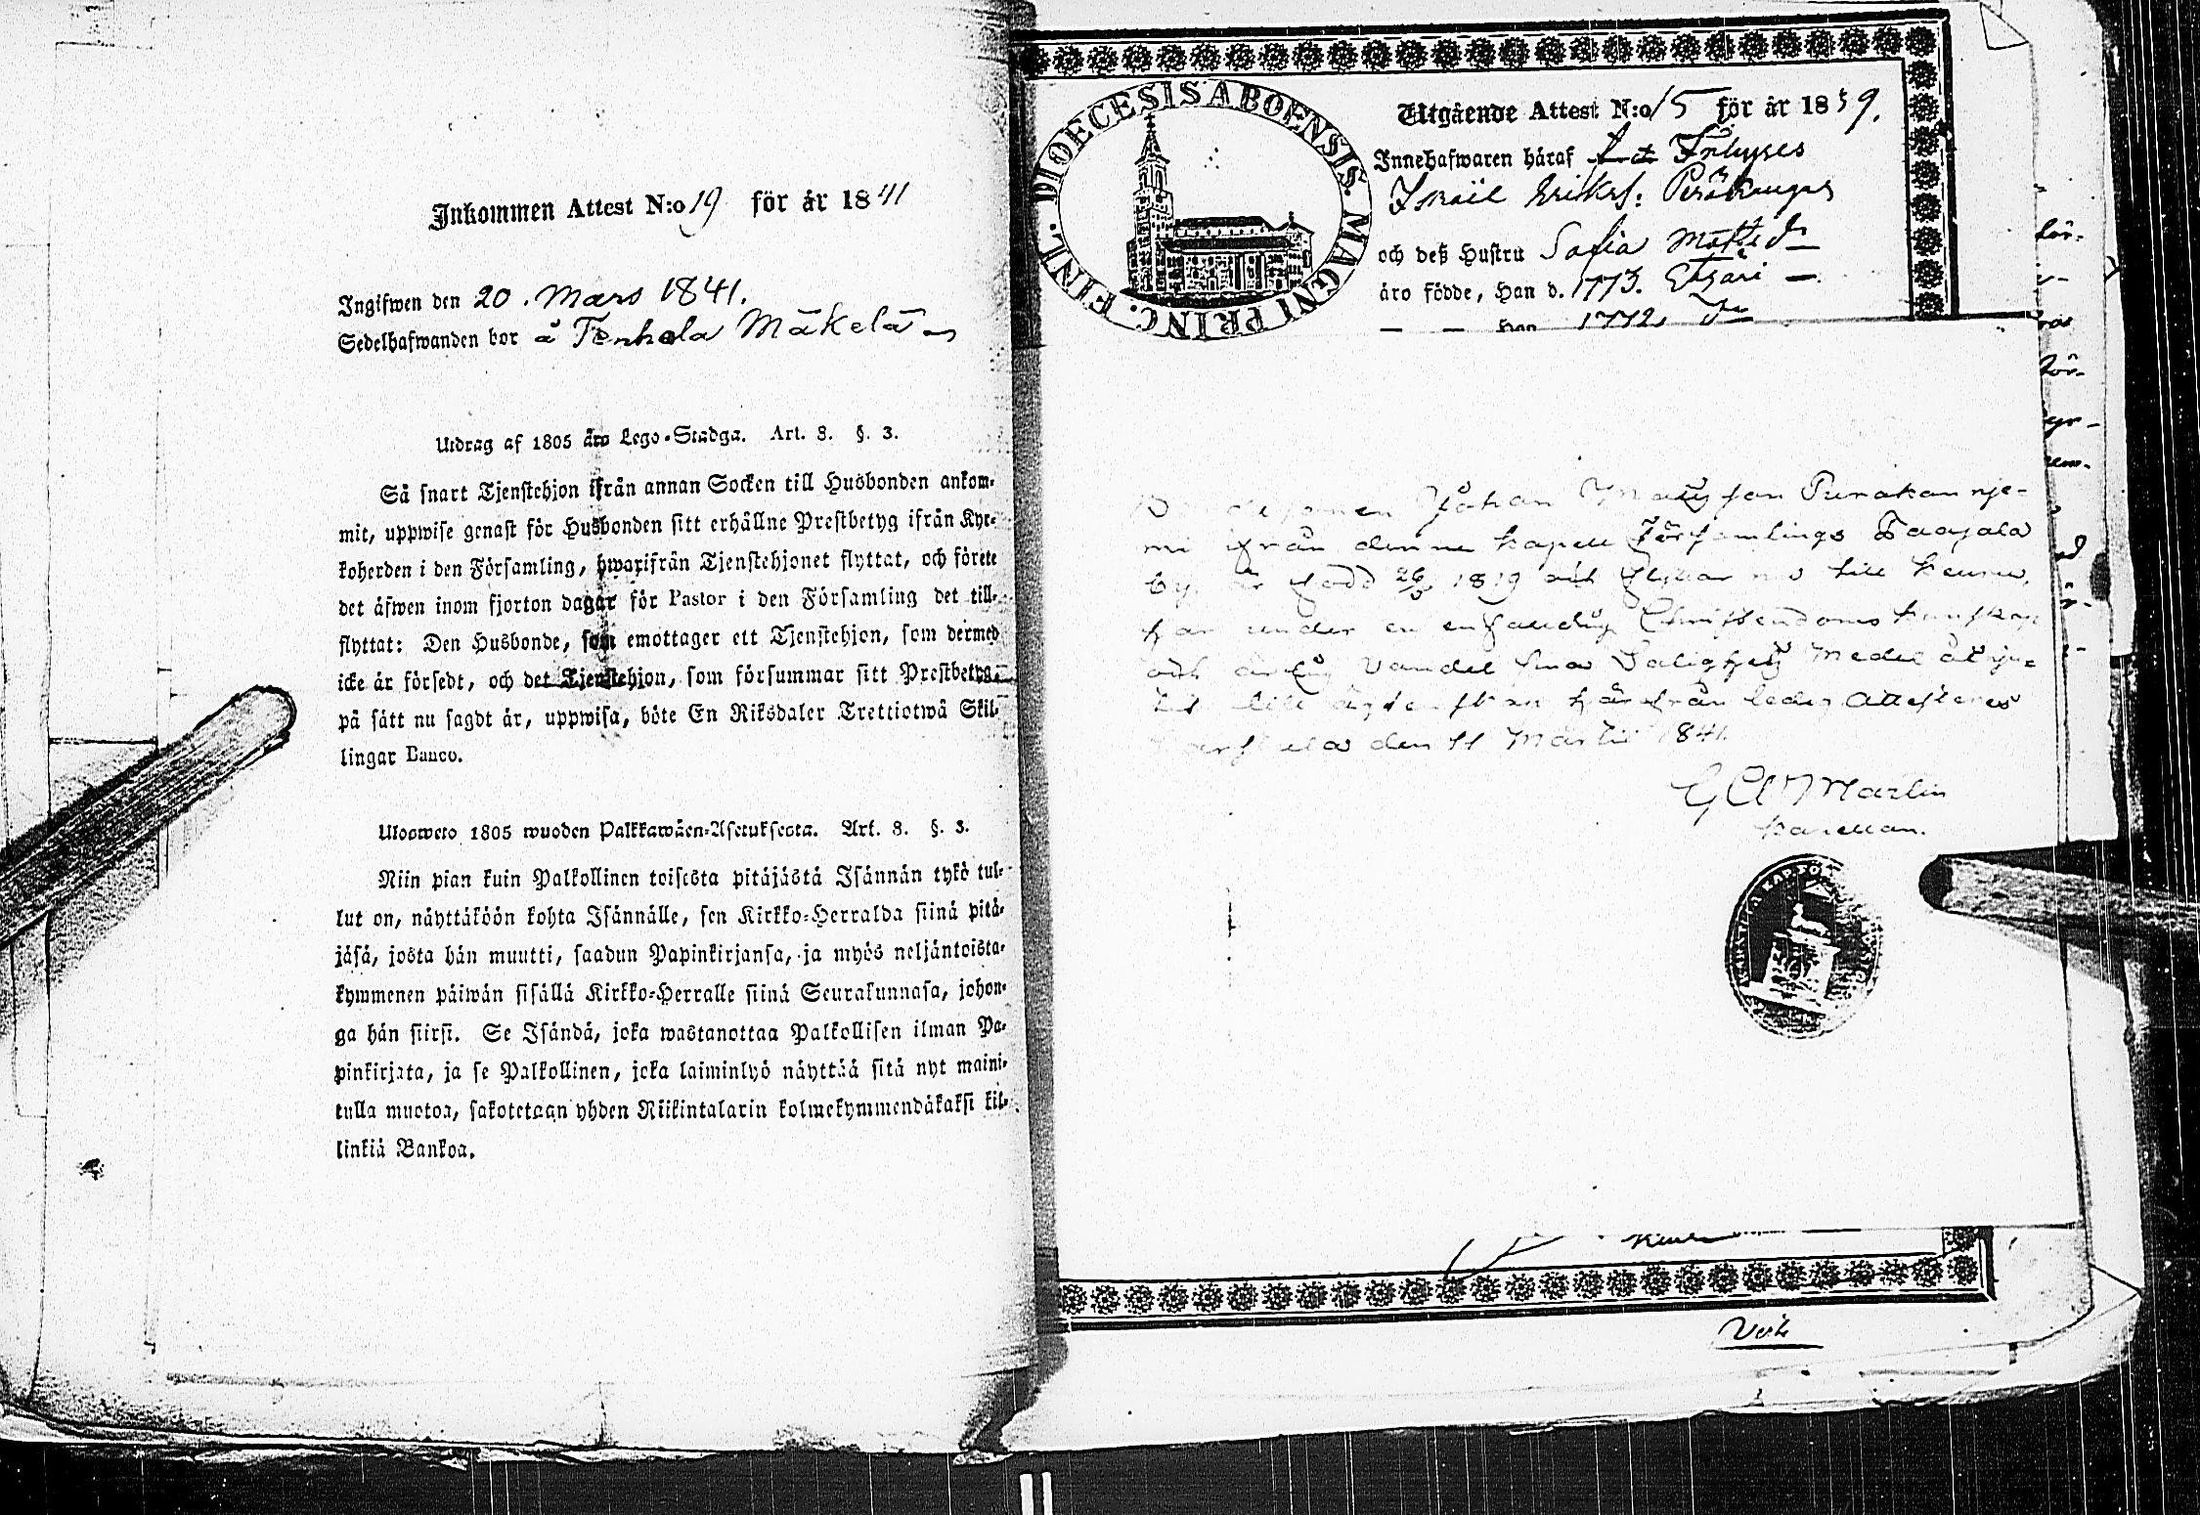 Inkommen Attest N:o 19 för år 1841
Ingifwen den 20. Mars 1841.
Sedelhafwanden bor å Tenhola Mäkelä
Utdrag af 1805 års Lego-Stadga. Art. 8. §. 3.
Så snart Tjenstehjon ifrån annan Socken till Husbonden ankom-
mit, uppwise genast för Husbonden sitt erhållne Prestbetyg ifrån Kyr-
koherden i den Församling, hwarifrån Tjenstehjonet flyttat, och förete
det äfwen inom fjorton dagar för Pastor i den Församling det till-
flyttat: Den Husbonde, som emottager ett Tjenstehjon, som dermed
icke är försedt, och det Tjenstehjon, som försummar sitt Prestbetyg,
på sätt nu sagdt är, uppwisa, böte En Riksdaler Trettiotwå Skil-
lingar Banco.
Ulosweto 1805 wuoden Palkkawäen-Asetuksesta. Art. 8. §. 3.
Niin pian kuin Palkollinen toisesta pitäjästä Isännän tykö tul-
lut on, näyttäköön kohta Isännälle, sen Kirkko-Herralda siinä pitä-
jäsä, josta hän muutti, saadun Papinkirjansa, ja myös neljäntoista-
kymmenen päiwän sisällä Kirkko-Herralle siinä Seurakunnasa, johon-
ga hän siirsi. Se Isändä, joka wastanottaa Palkollisen ilman Pa-
pinkirjata, ja se Palkollinen, joka laiminlyö näyttää sitä nyt maini-
tulla muotoa, sakotetaan yhden Riikintalarin kolmekymmendäkaksi kil-
linkiä Bankoa.
DIOECESIS ABOENSIS. MAGNI PRINC. FINL.
Utgående Attest N:o 15 för år 1839.
Innehafwaren häraf Inhyses
Israël Eriks: Peräkangas
och deß Hustru Sofia Mattsdr
äro födde, Han d. 1773. Etseri
Hon 1772
Johan Purakannje-
mi från denne kapell Församlings Saajala
by är född 26/3 1819 och flyttar nu till Keuru,
har under en enfaldig Christendoms kunskap
och ärlig Vandel sina Salighets Medel åtnju-
tit till ägtenskap härifrån ledig Attesteras
den 11 Martii 1841
Martin
Kapellan.
Verte